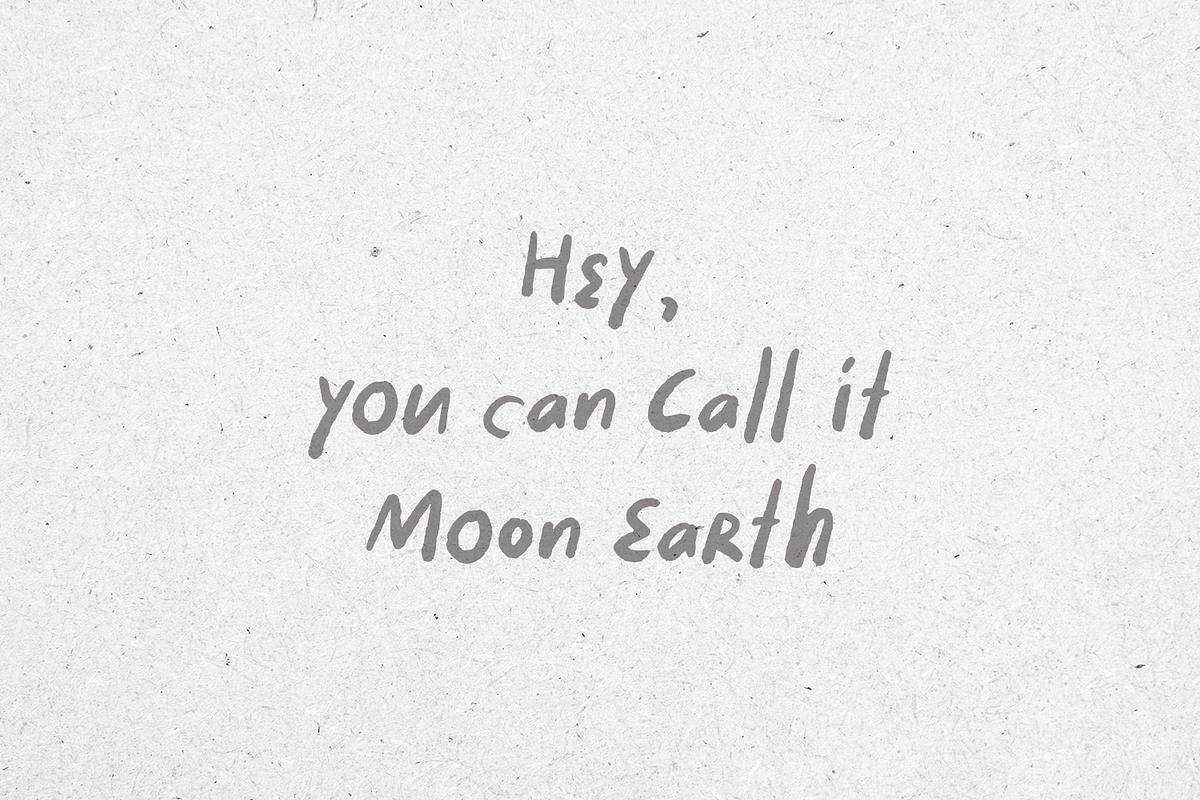 Hey,
you can Call it
Moon EaRth